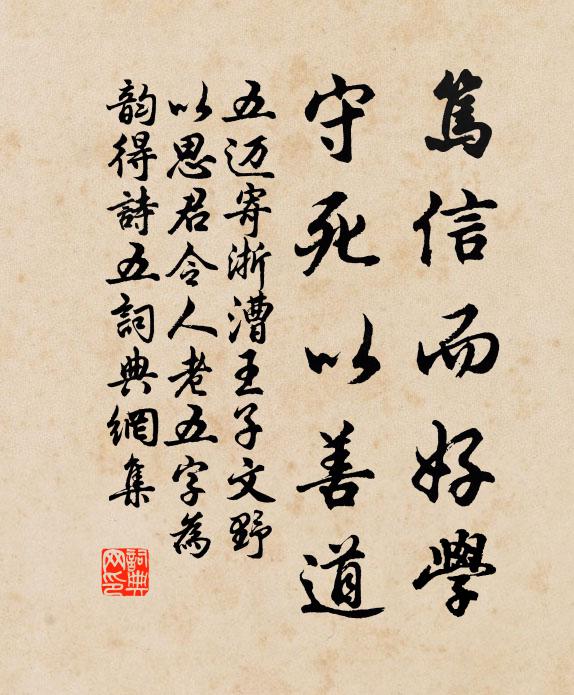 篤信而好學
守死以善道
五迈寄浙漕王子文野
以思君令人老五字為
韵得詩五詞典網集
詞典网印